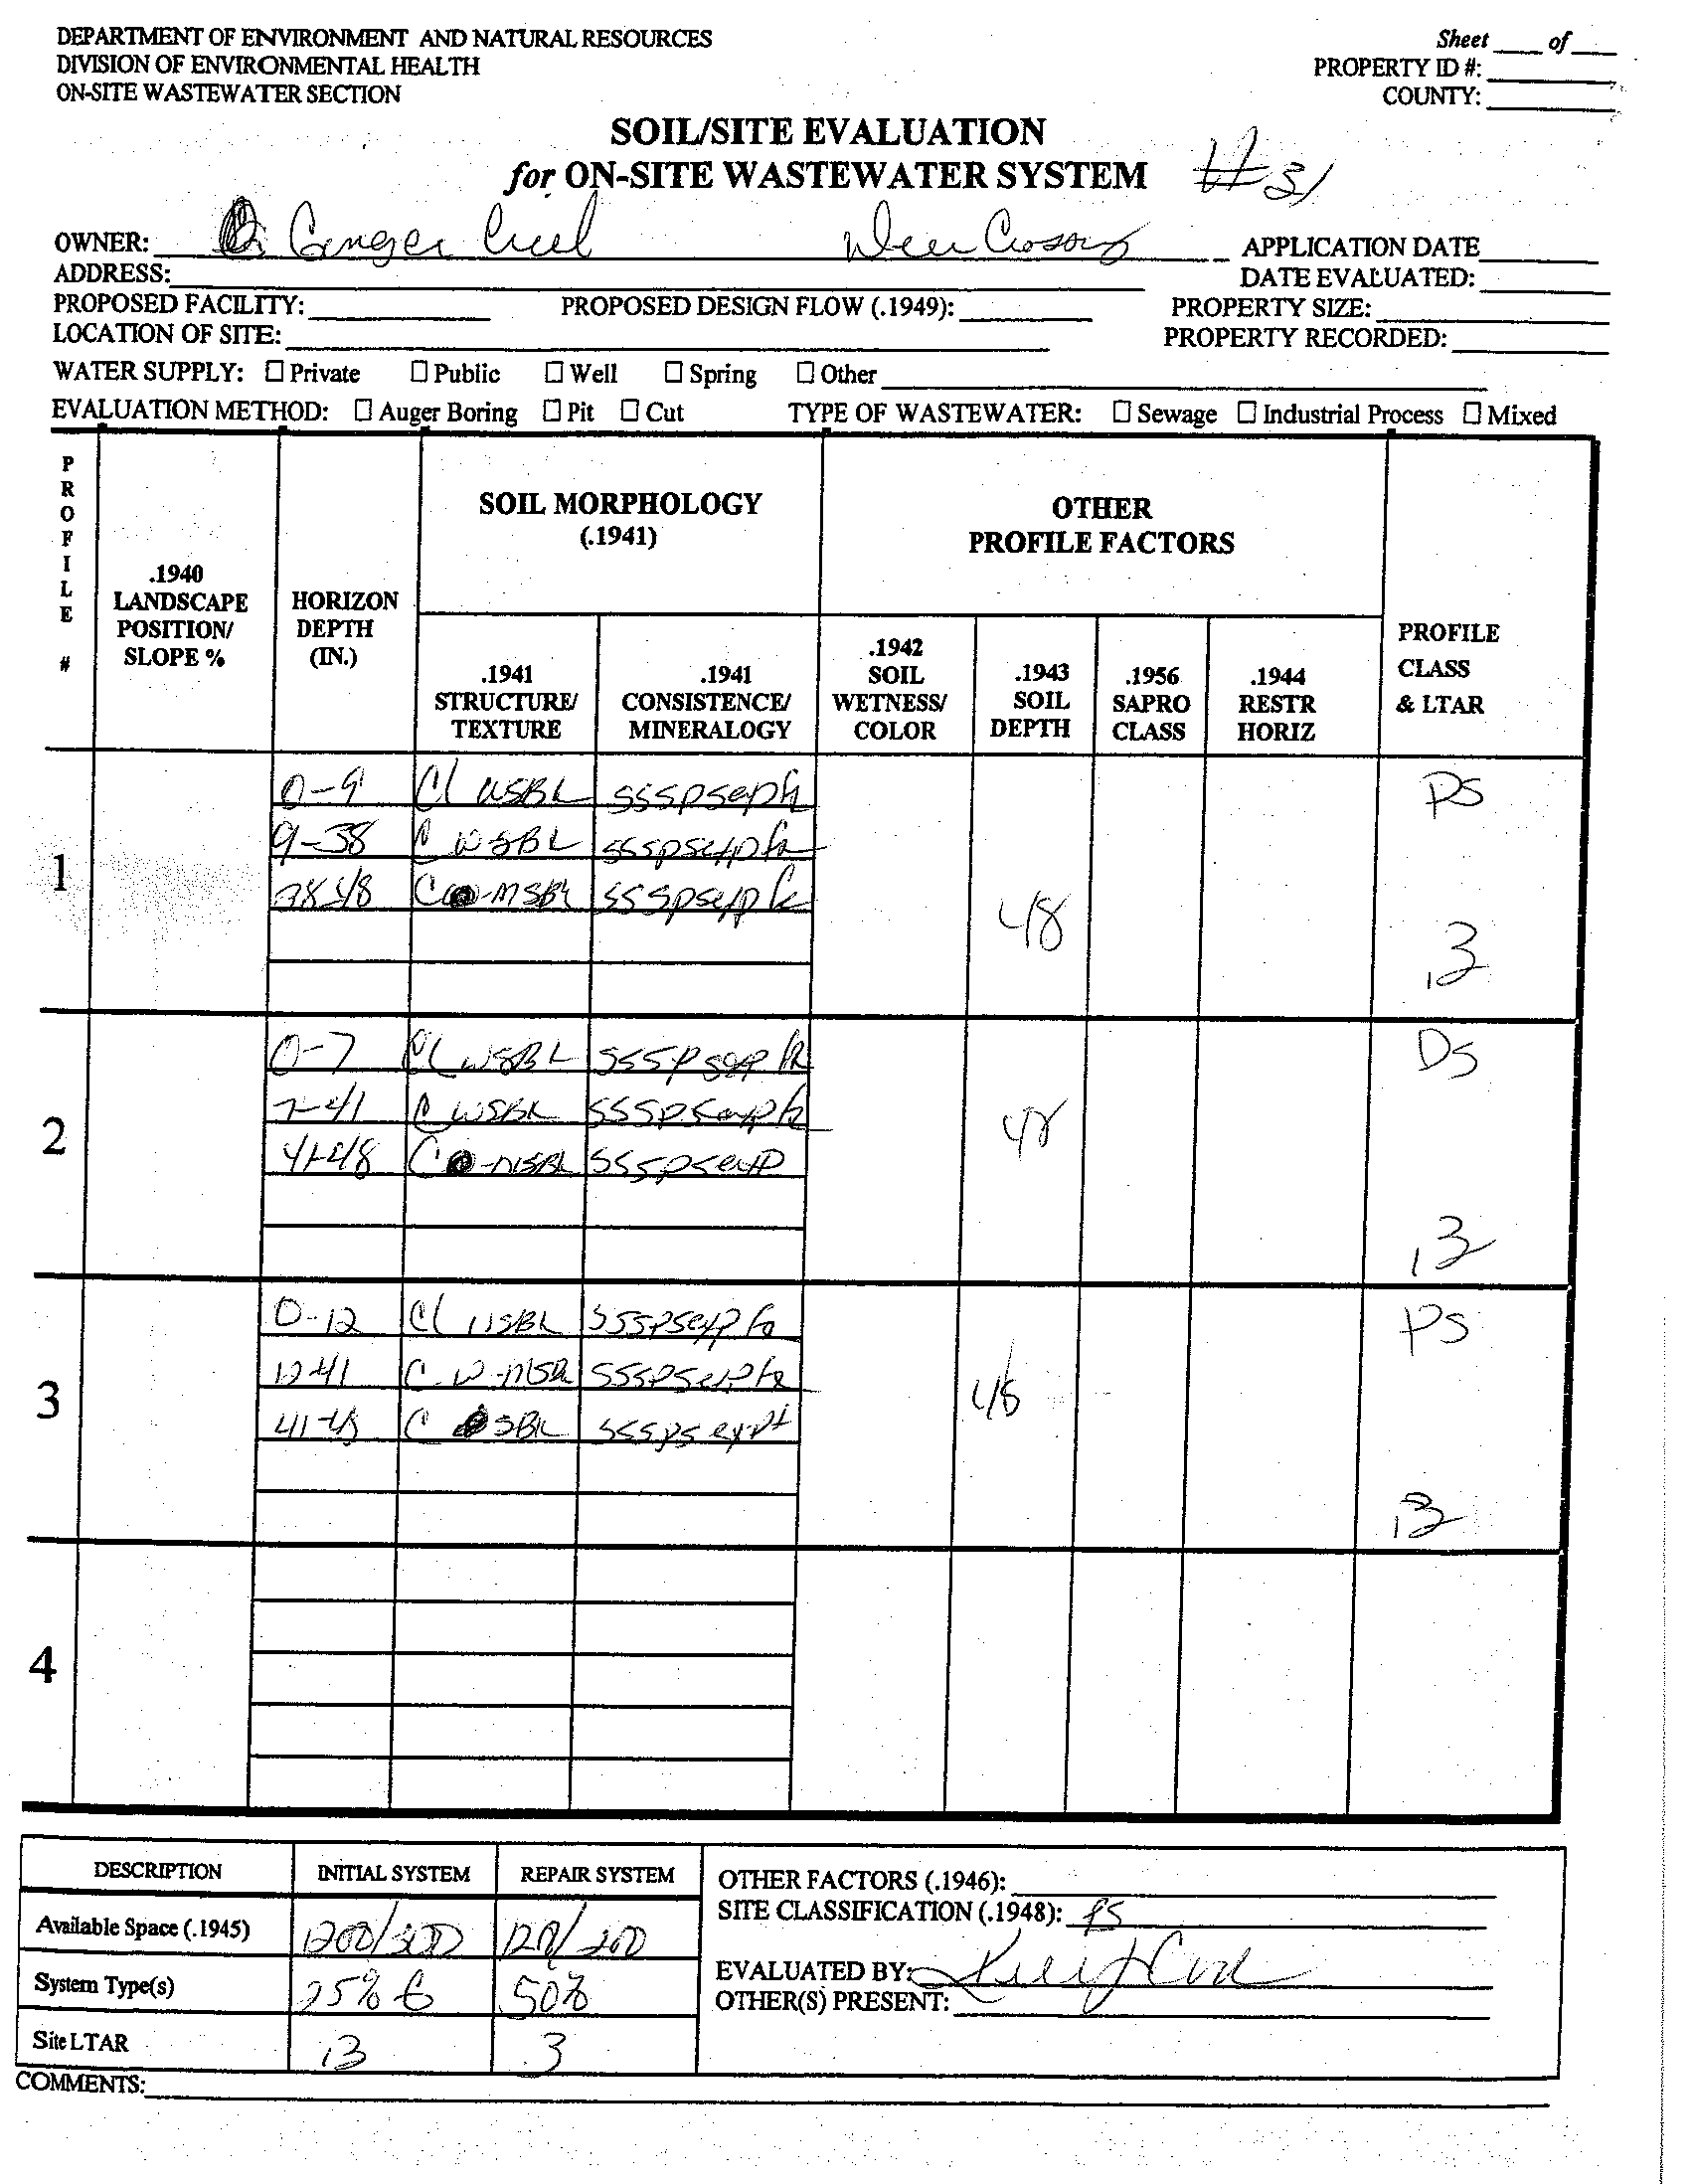 DEPARTMENT OF ENVIRONMENT AND NATURAL RESOURCES
DIVISION OF ENVIRONMENTAL HEALTH
ON-SITE WASTEWATER SECTION
Sheet ____ of ____
PROPERTY ID #:
COUNTY:
SOIL/SITE EVALUATION
for ON-SITE WASTEWATER SYSTEM #31
OWNER: Ginger Creel Deer Crossing APPLICATION DATE
ADDRESS: DATE EVALUATED:
PROPOSED FACILITY: PROPOSED DESIGN FLOW (.1949): PROPERTY SIZE:
LOCATION OF SITE: PROPERTY RECORDED:
WATER SUPPLY: ☐ Private ☐ Public ☐ Well ☐ Spring ☐ Other
EVALUATION METHOD: ☐ Auger Boring ☐ Pit ☐ Cut TYPE OF WASTEWATER: ☐ Sewage ☐ Industrial Process ☐ Mixed
PROFILE #
.1940 LANDSCAPE POSITION/ SLOPE %
HORIZON DEPTH (IN.)
SOIL MORPHOLOGY (.1941)
.1941 STRUCTURE/ TEXTURE
.1941 CONSISTENCE/ MINERALOGY
OTHER PROFILE FACTORS
.1942 SOIL WETNESS/ COLOR
.1943 SOIL DEPTH
.1956 SAPRO CLASS
.1944 RESTR HORIZ
PROFILE CLASS & LTAR
1
0-9 Cl WSBL SSSPSexp PS
9-38 C WSBL SSSPSexp
38-48 C -MSBL SSSPSexp 48
.3
2
0-7 CL WSBL SSSPSexp PS
7-41 C WSBL SSSPSexp 48
41-48 C -MSBL SSSPSexp
.3
3
0-12 Cl WSBL SSSPSexp PS
12-41 C W-MSBL SSSPSexp 48
41-48 C SBL SSSPSexp
.3
4
DESCRIPTION INITIAL SYSTEM REPAIR SYSTEM
Available Space (.1945) 1200/300
System Type(s) 25% 50%
Site LTAR .3 .3
OTHER FACTORS (.1946):
SITE CLASSIFICATION (.1948): PS
EVALUATED BY:
OTHER(S) PRESENT:
COMMENTS: